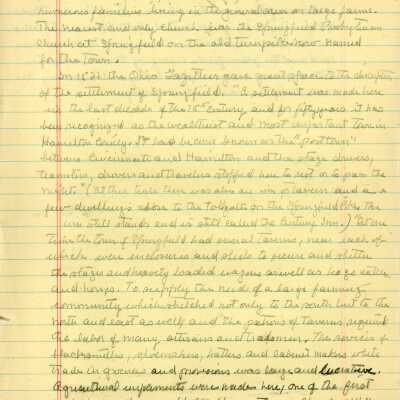 numerous families living in the general area on large farms.
The nearest and only church was the Springfield Presbyterian
Church at Springfield on the old turnpike now named
for the town.
In 1821 the Ohio Gazetteer gave great space to the
of the settlement of Springfield. "A settlement was made here
in the last decade of the 18th century, and for fifty years it has
been recognized as the wealthiest and most important town in
Hamilton County. It had become known as the "post town"
between Cincinnati and Hamilton and the stage drivers,
teamsters, drovers and travelers stopped here to rest or to pass the
night." (At this time there was also an inn or tavern and a
few dwellings close to the tollgate on the Springfield Pike. The
inn still stands and is still called the Century Inn.) "At one
time the town of Springfield had several taverns, near each of
which were inclosures and sheds to secure and shelter
the stages and heavily loaded wagons as well as large cattle
and horses. To supply the needs of a large farming
community which stretched not only to the south but to the
north and east as well, and the patrons of taverns required
the labor of many artisans and tradesmen. The services of
blacksmiths, shoemakers, hatters and cabinet makers while
trade in groceries and provisions was large and lucrative.
Agricultural implements were made here; one of the first